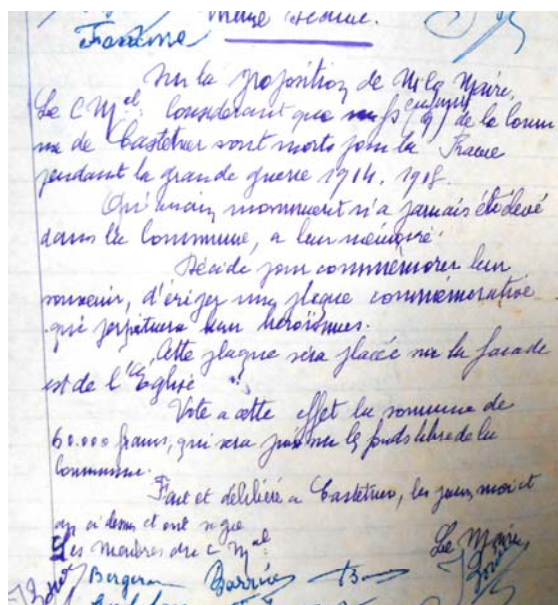 Même séance.
Sur la proposition de M. le Maire,
Le C Mal. Considérant que neuf (9) enfants de la Commu
ne de Castetner sont morts pour la France
pendant la grande guerre 1914. 1918.
Qu'aucun monument n'a jamais été élevé
dans la Commune, a leur mémoire
Décide pour commémorer leur
souvenir, d'ériger une plaque commémorative
qui perpétuera leur héroïsmes.
Cette plaque sera placée sur la façade
est de l'Eglise
Vote a cette effet la somme de
60.000 francs, qui sera pris sur les fonds libre de la
Commune.
Fait et délibéré a Castetner, les jour, mois et
an ci dessus et ont signé
Les membres du C Mal Le Maire
Bergeras Barrière